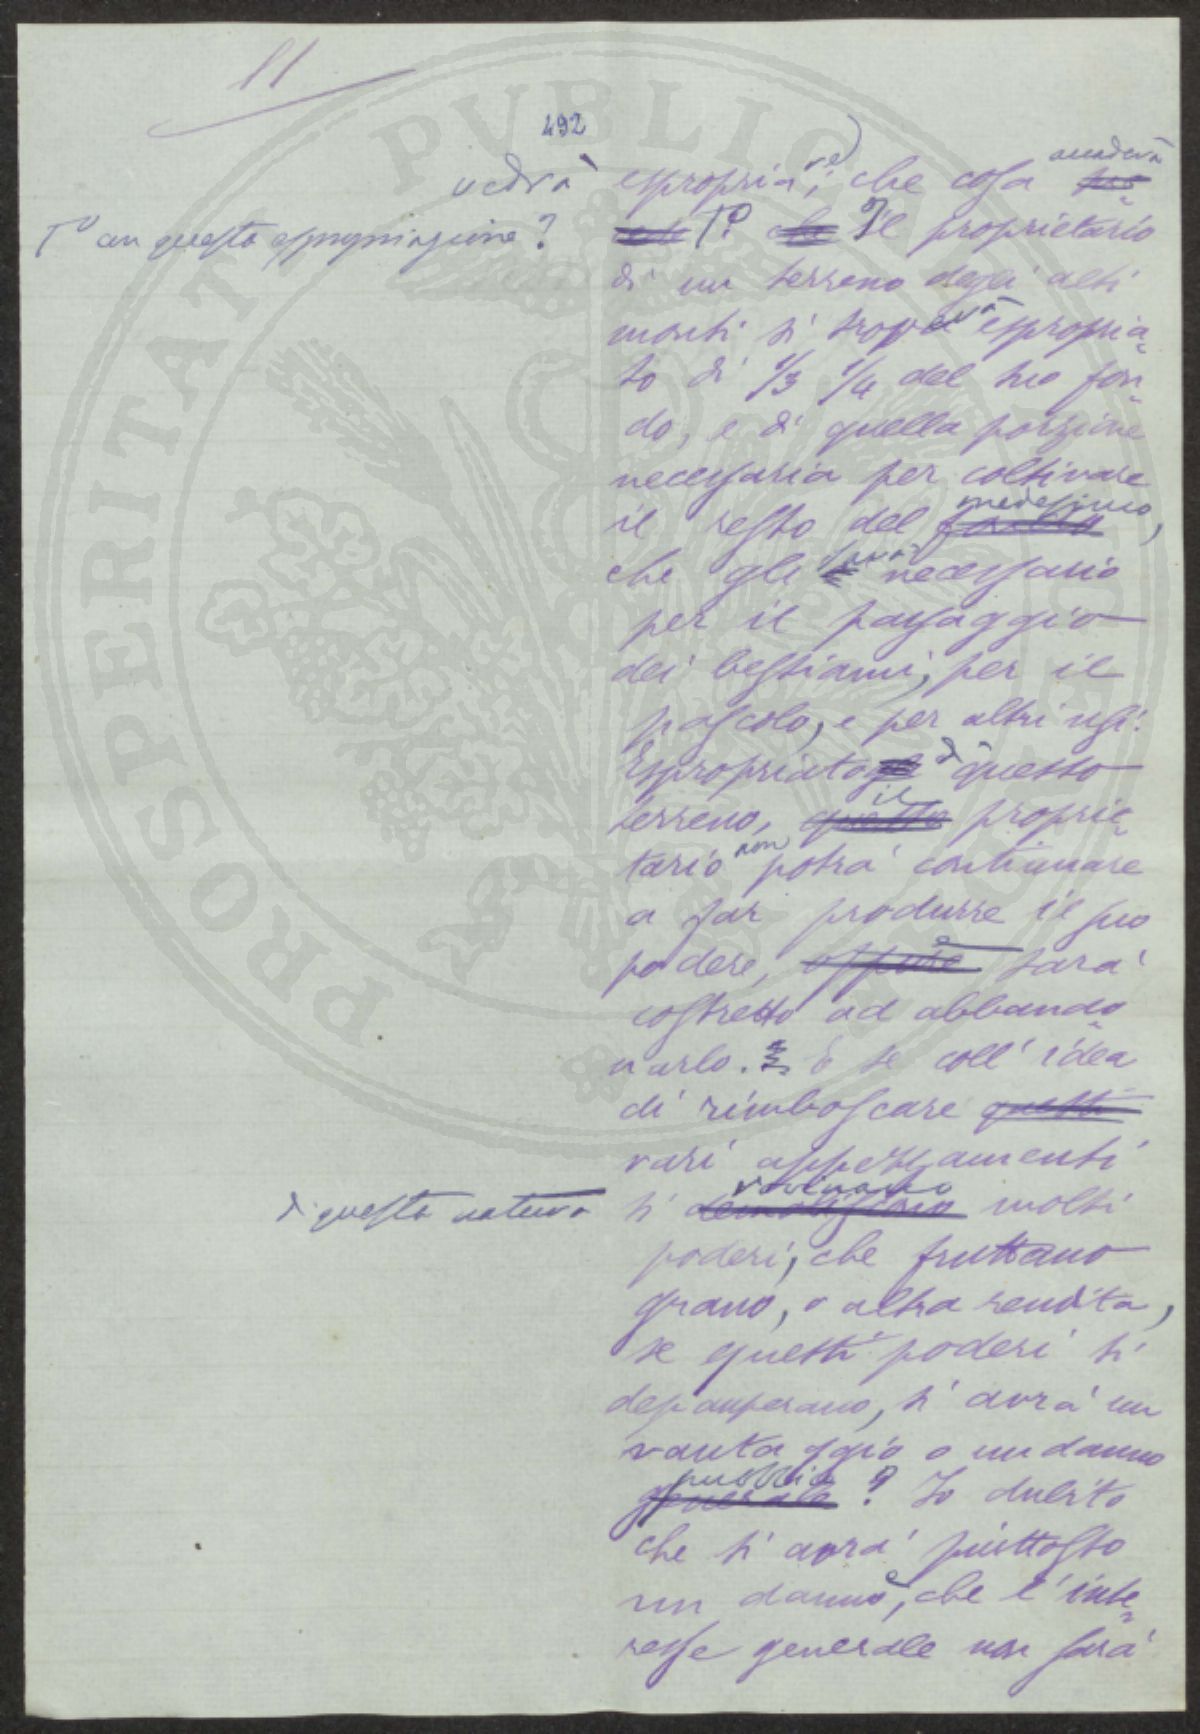 11
492
PROSPERITAT PVBLICAE
vedrà
espropriare, che cosa accaderà
T° con questa espropriazione?
T° Il proprietario
di un terreno degli alti
monti si troverà espropria-
to di 1/3 1/4 del suo fon-
do, e di quella porzione
necessaria per coltivare
il resto del medesimo,
che gli sarà necessario
per il passaggio
dei bestiami, per il
pascolo, e per altri usi.
Espropriato di questo
terreno, il proprie-
tario non potrà continuare
a far produrre il suo
podere, e sarà
costretto ad abbando-
narlo. E se coll' idea
di rimboscare
vari appezzamenti
di questa natura
si rovinano molti
poderi, che fruttano
grano, o altra rendita,
se questi poderi si
depauperano, si avrà un
vantaggio o un danno
pubblico? Io dubito
che si avrà piuttosto
un danno, e che l' inte-
resse generale non sarà